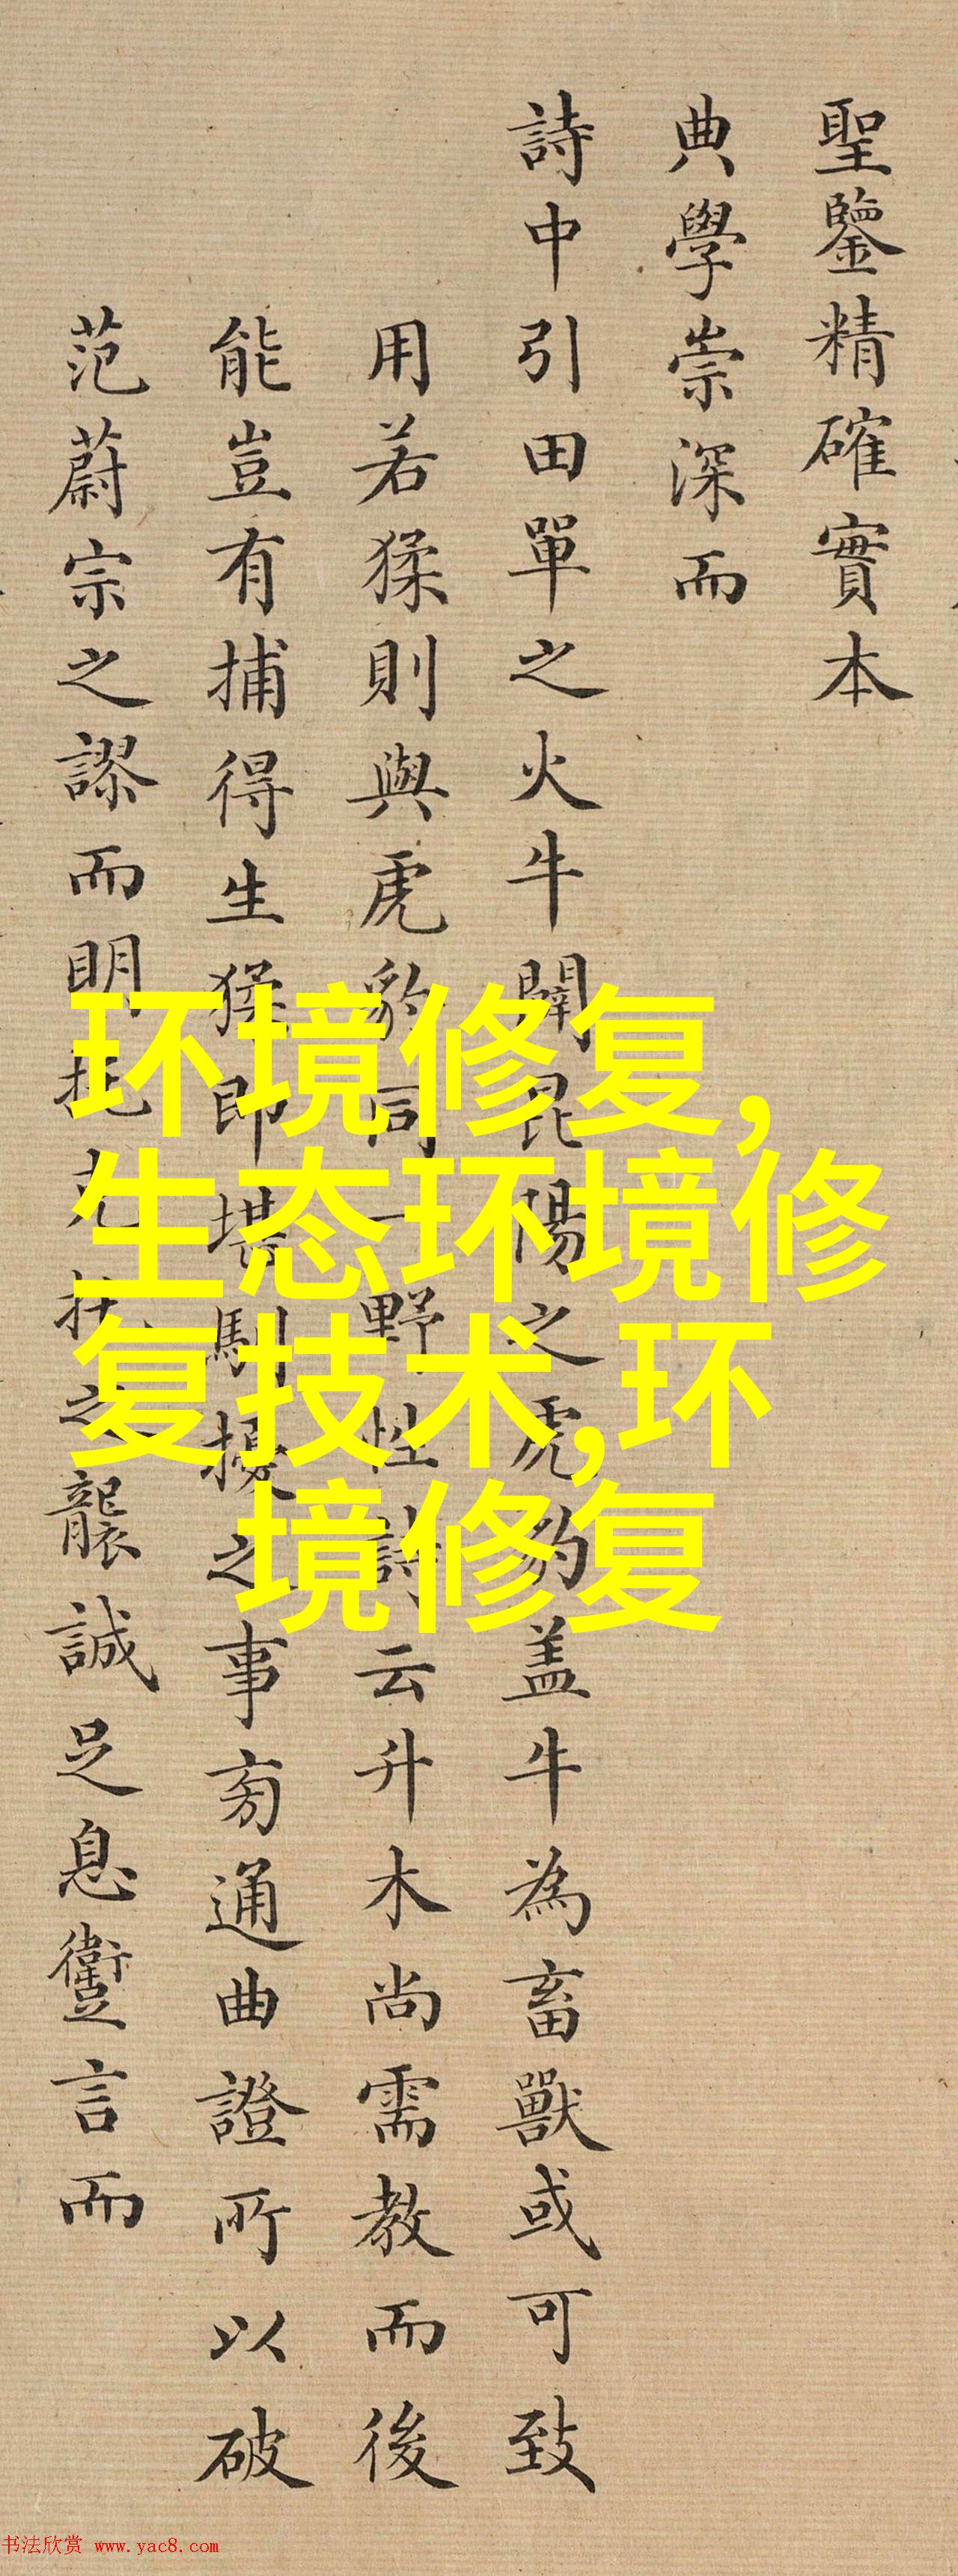 聖鑒精確實本
典學崇深而
詩中引田單之火牛闢昆陽之虎豹盖牛為畜獸或可致
用若猱則與虎豹同一野性詩云升木尚需教而後
能豈有捕得生猱即堪馴擾之事旁通曲證所以破
范蔚宗之謬而明托克托之襲誠足息躛言而
环境修复,
生态环境修
复技术,环
境修复
书法欣赏 www.yac8.com